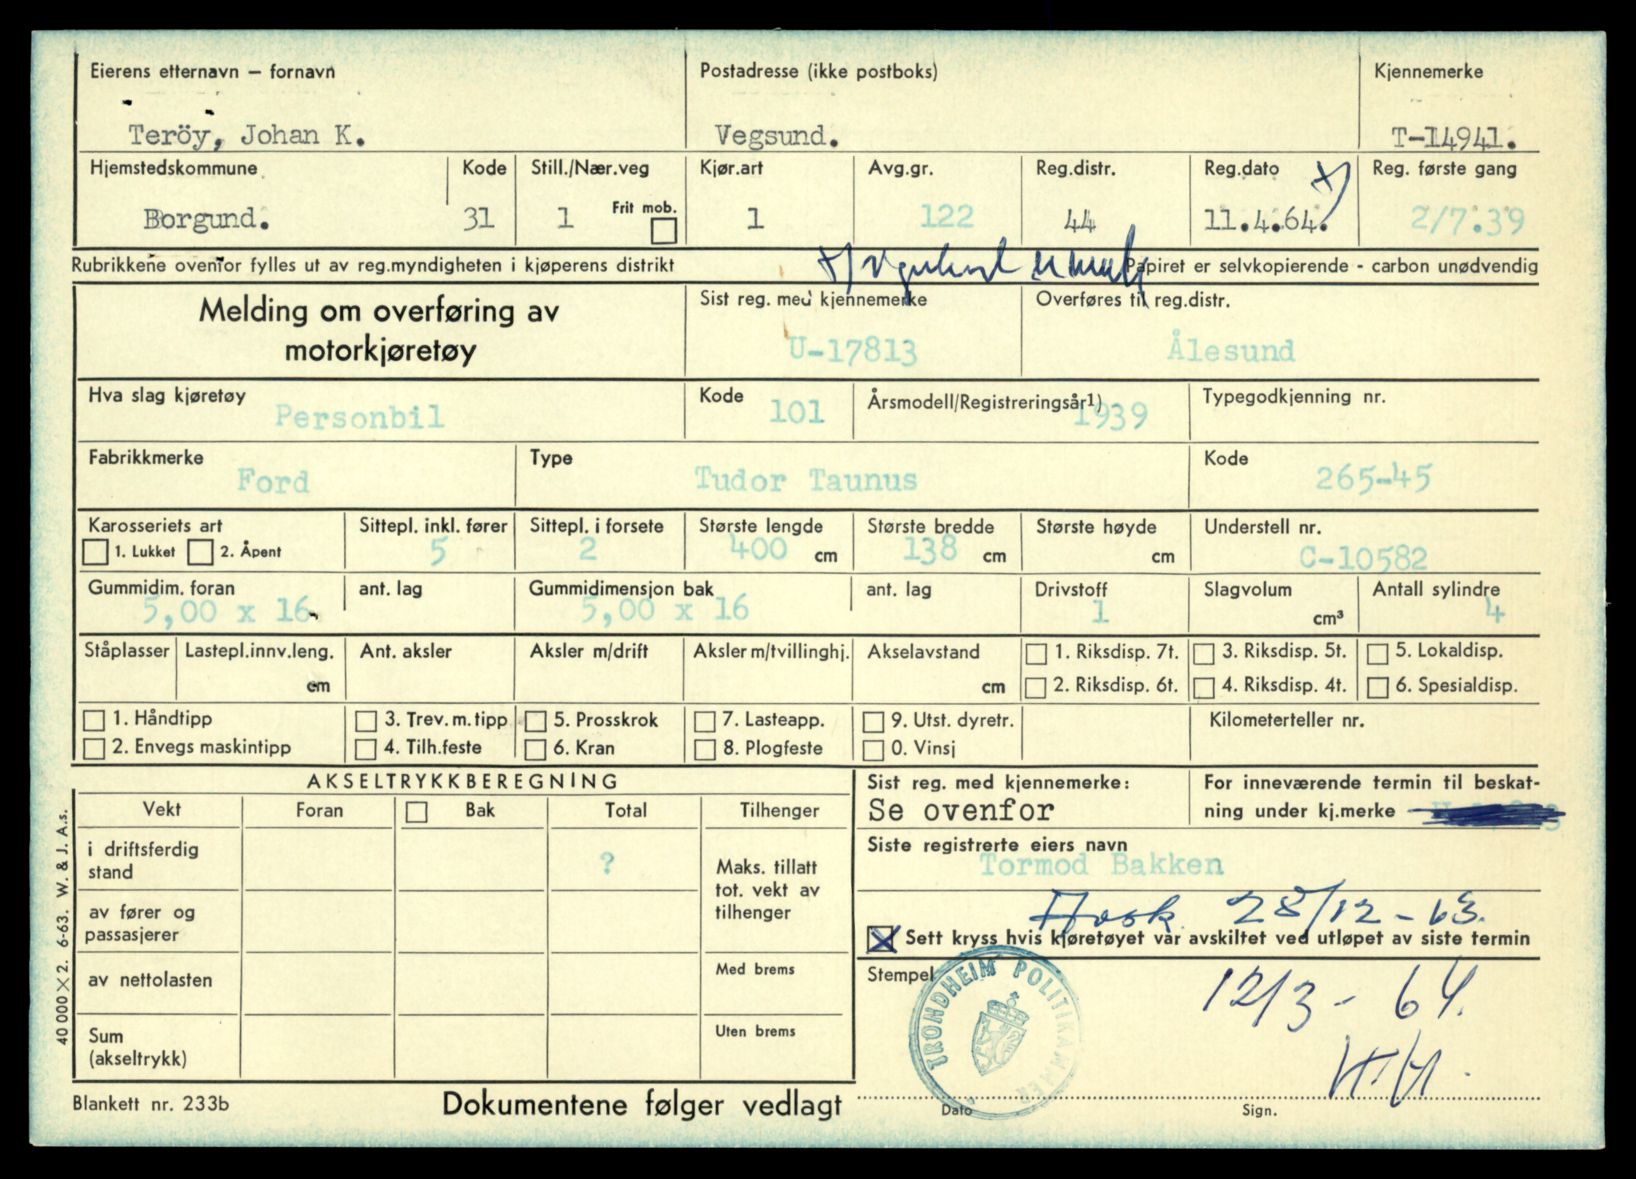 Eierens etternavn – fornavn Postadresse (ikke postboks) Kjennemerke
Teröy, Johan K. Vegsund. T-14941.
Hjemstedskommune Kode Still./Nær.veg Kjør.art Avg.gr. Reg.distr. Reg.dato Reg. første gang
Frit mob.
Borgund. 31 1 1 122 44 11.4.64. x) 2/7.39
Rubrikkene ovenfor fylles ut av reg.myndigheten i kjøperens distrikt x) Papiret er selvkopierende - carbon unødvendig
Melding om overføring av motorkjøretøy
Sist reg. med kjennemerke Overføres til reg.distr.
U-17813 Ålesund
Hva slag kjøretøy Kode Årsmodell/Registreringsår1) Typegodkjenning nr.
Personbil 101 1939
Fabrikkmerke Type Kode
Ford Tudor Taunus 265-45
Karosseriets art Sittepl. inkl. fører Sittepl. i forsete Største lengde Største bredde Største høyde Understell nr.
1. Lukket 2. Åpent 5 2 400 cm 138 cm cm C-10582
Gummidim. foran ant. lag Gummidimensjon bak ant. lag Drivstoff Slagvolum Antall sylindre
5,00 x 16 5,00 x 16 1 cm³ 4
Ståplasser Lastepl.innv.leng. Ant. aksler Aksler m/drift Aksler m/tvillinghj. Akselavstand 1. Riksdisp. 7t. 3. Riksdisp. 5t. 5. Lokaldisp.
cm cm 2. Riksdisp. 6t. 4. Riksdisp. 4t. 6. Spesialdisp.
1. Håndtipp 3. Trev. m. tipp 5. Prosskrok 7. Lasteapp. 9. Utst. dyretr. Kilometerteller nr.
2. Envegs maskintipp 4. Tilh.feste 6. Kran 8. Plogfeste 0. Vinsj
AKSELTRYKKBEREGNING
Vekt Foran Bak Total Tilhenger
i driftsferdig stand ? Maks. tillatt tot. vekt av tilhenger
av fører og passasjerer
av nettolasten Med brems
Sum (akseltrykk) Uten brems
Sist reg. med kjennemerke: For inneværende termin til beskat-
Se ovenfor ning under kj.merke
Siste registrerte eiers navn
Tormod Bakken
Avsk. 28/12-63.
Sett kryss hvis kjøretøyet var avskiltet ved utløpet av siste termin
Stempel
TRONDHEIM POLITIKAMMER
12/3-64.
H.H.
Dato Sign.
40 000 × 2. 6-63. W. & J. A.s.
Blankett nr. 233b Dokumentene følger vedlagt